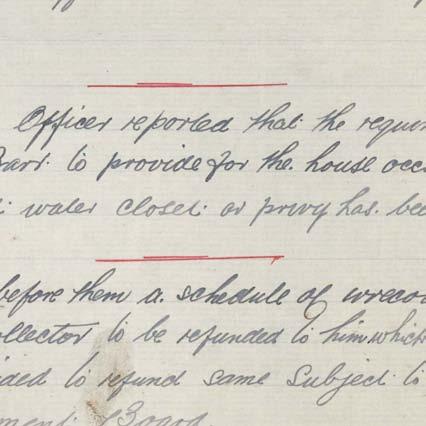 Officer reported that the requir
Barr to provide for the house occ
water closet or privy has bee
before them a schedule of irrecov
ollector to be refunded to him which
ided to refund same Subject to
ment